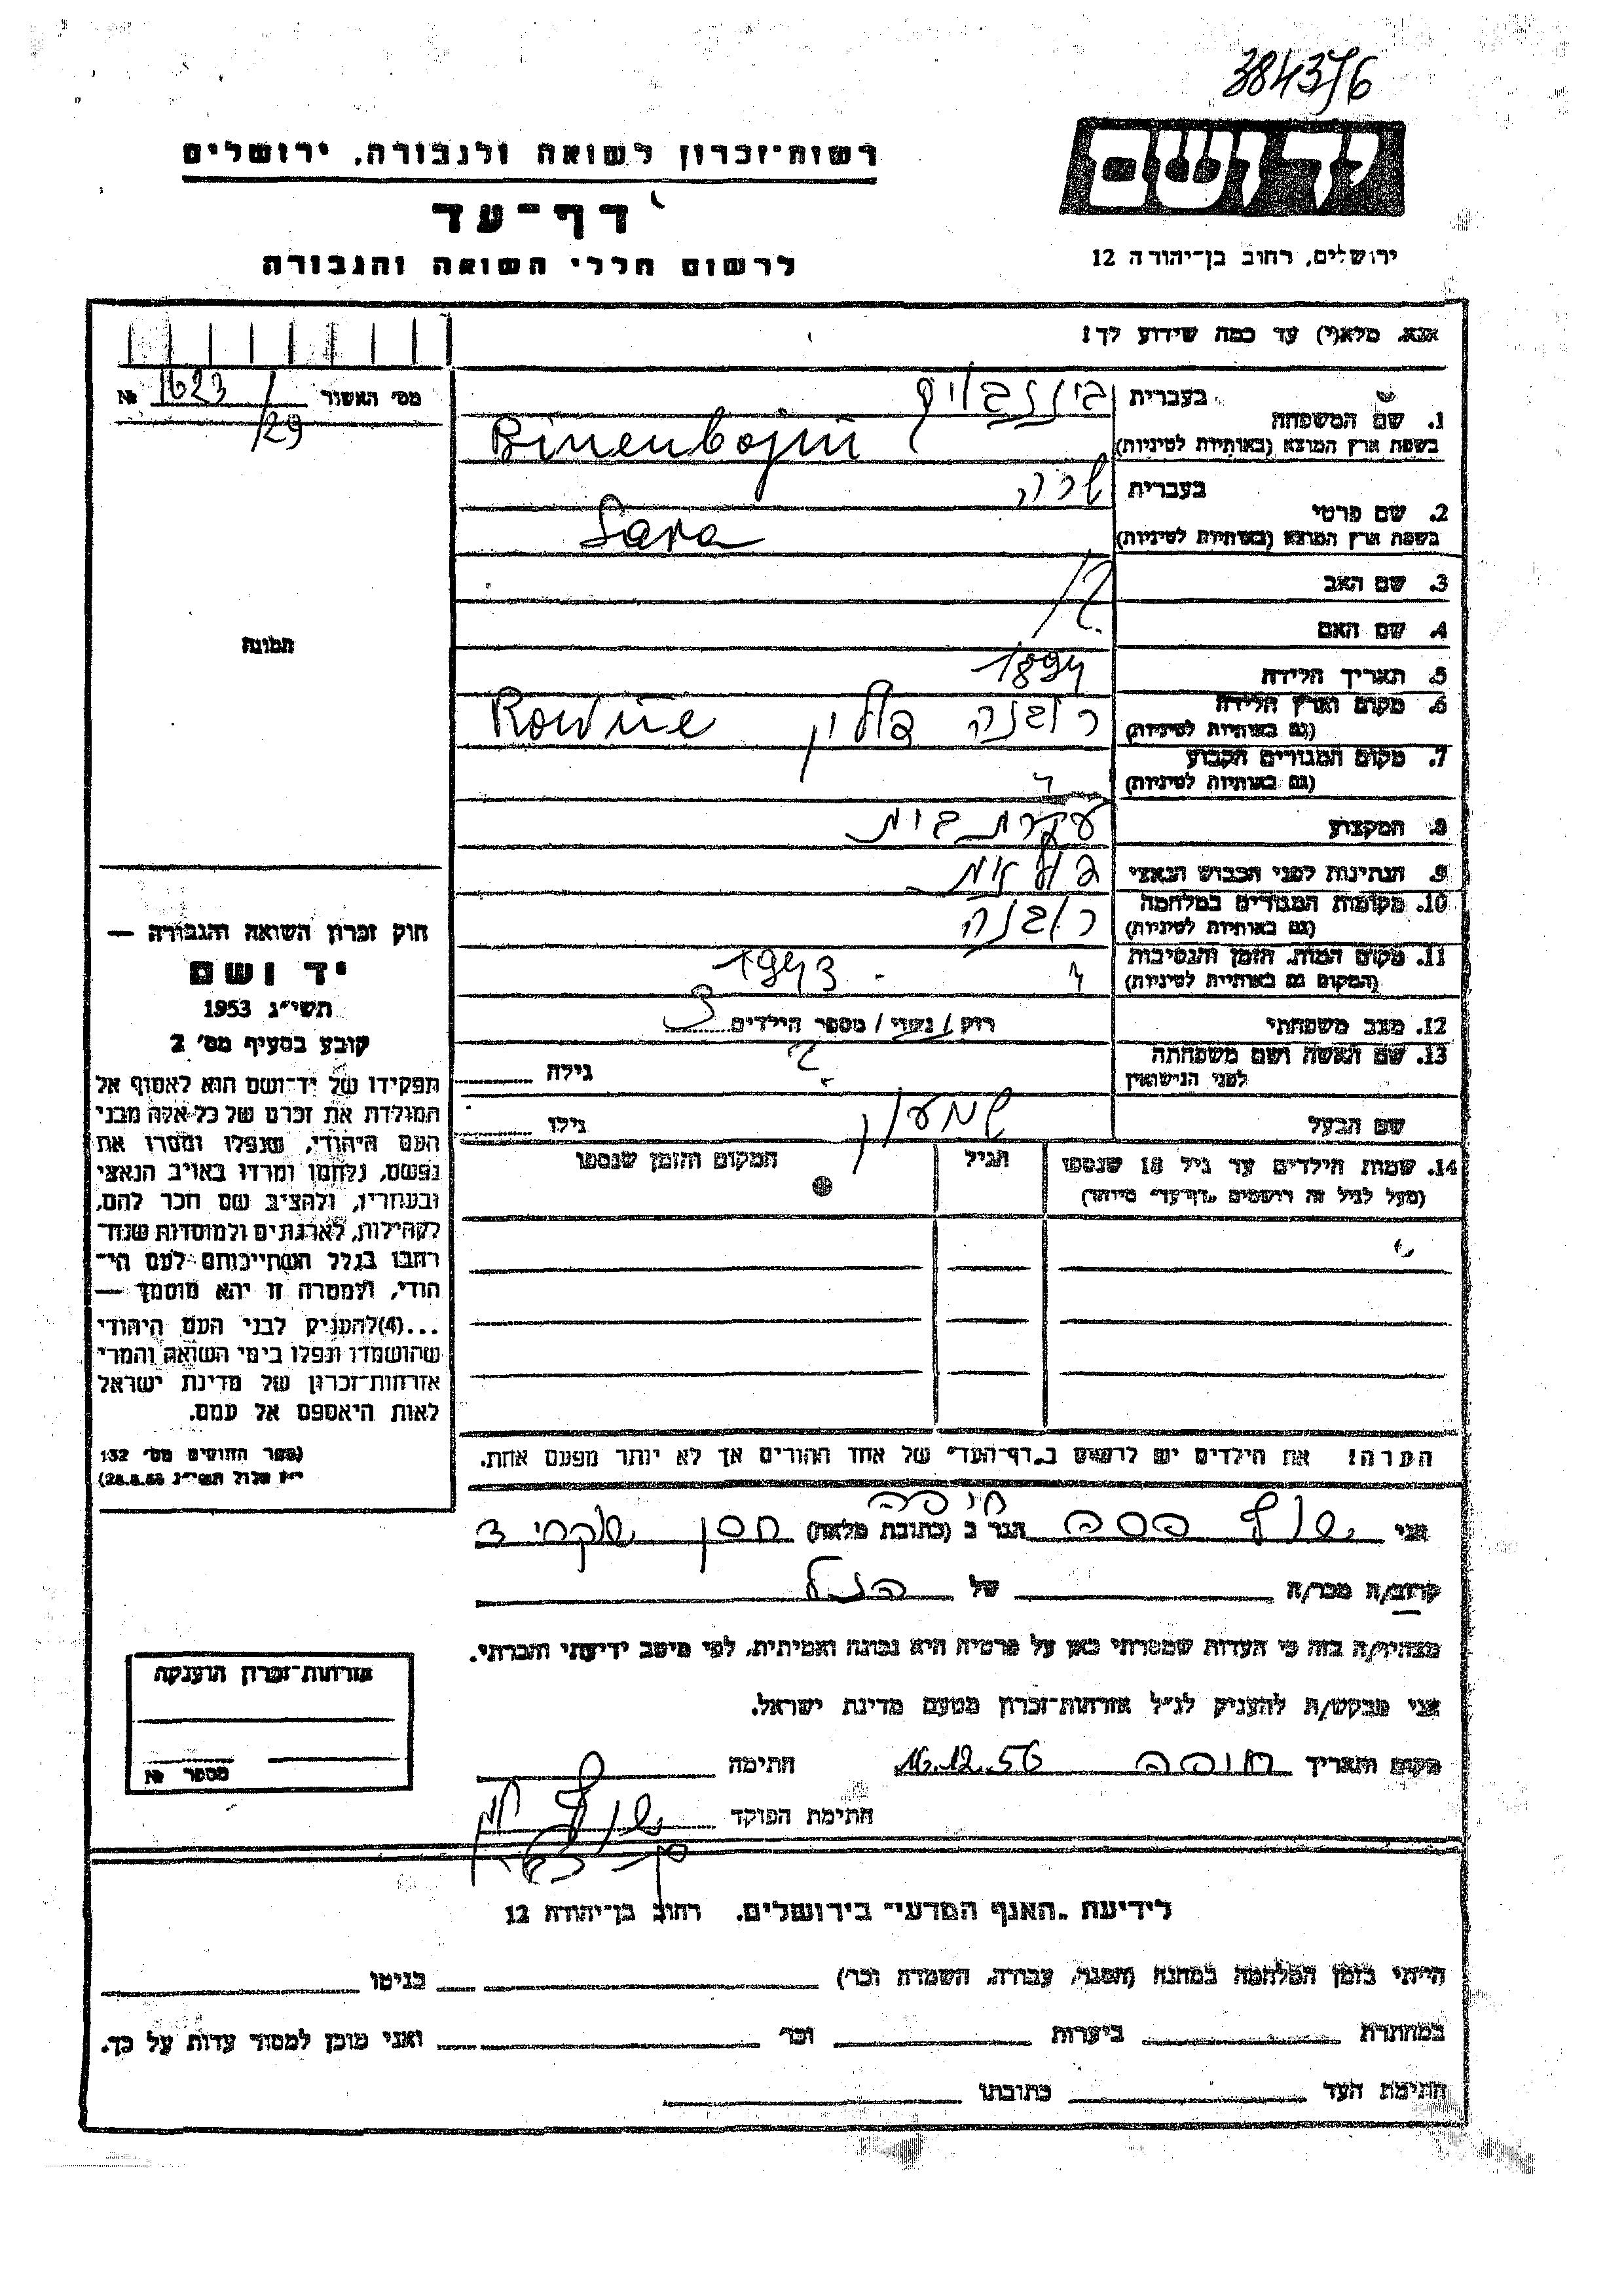 384376
רשות־זכרון לשואה ולגבורה, ירושלים
יד ושם
דף־עד
ירושלים, רחוב בן־יהודה 12
לרשום חללי השואה והגבורה
אנא, מלא(י) עד כמה שידוע לך!
מס׳ האשור 1623/29 №
1. שם המשפחה
בעברית
בשפת ארץ המוצא (באותיות לטיניות) Binenbojm
2. שם פרטי
בעברית שרה
בשפת ארץ המוצא (באותיות לטיניות) Sara
3. שם האב ?
4. שם האם
5. תאריך הלידה 1894
6. מקום וארץ הלידה (גם באותיות לטיניות) רובנה פולין Rowne
7. מקום המגורים הקבוע (גם באותיות לטיניות)
8. המקצוע עקרת בית
9. הנתינות לפני הכבוש הנאצי פולנית
10. מקומות המגורים במלחמה (גם באותיות לטיניות) רובנה
11. מקום המות, הזמן והנסיבות (המקום גם באותיות לטיניות) 1943
12. מצב משפחתי רוק / נשוי / מספר הילדים 3
13. שם האשה ושם משפחתה לפני הנישואין ? גילה
שם הבעל שמעון גילו
14. שמות הילדים עד גיל 18 שנספו הגיל המקום והזמן שנספו
(מעל לגיל זה רושמים „דף־עד״ מיוחד)
הערה! את הילדים יש לרשום ב„דף־העד״ של אחד ההורים אך לא יותר מפעם אחת.
תמונה
חוק זכרון השואה והגבורה —
יד ושם
תשי״ג 1953
קובע בסעיף מס׳ 2
תפקידו של יד־ושם הוא לאסוף אל
המולדת את זכרם של כל אלה מבני
העם היהודי, שנפלו ומסרו את
נפשם, נלחמו ומרדו באויב הנאצי
ובעוזריו, ולהציב שם וזכר להם,
לקהילות, לארגונים ולמוסדות שנח־
רבו בגלל השתייכותם לעם הי־
הודי, ולמטרה זו יהא מוסמך —
...(4) להעניק לבני העם היהודי
שהושמדו ונפלו בימי השואה והמרי
אזרחות־זכרון של מדינת ישראל
לאות היאספם אל עמם.
(ספר החוקים מס׳ 132
י״ז אלול תשי״ג 28.8.53)
חיפה
אני הגר ב (כתובת מלאה)
קרוב/ה מכר/ה של הנ״ל
מצהיר/ה בזה כי העדות שמסרתי כאן על פרטיה היא נכונה ואמיתית, לפי מיטב ידיעתי והכרתי.
אני מבקש/ת להעניק לנ״ל אזרחות־זכרון מטעם מדינת ישראל.
מקום ותאריך חיפה 16.12.56 חתימה
חתימת הפוקד
אזרחות־זכרון הוענקה
מספר №
לידיעת „האגף המדעי״ בירושלים, רחוב בן־יהודה 12
הייתי בזמן המלחמה במחנה (הסגר, עבודה, השמדה וכו׳) בגיטו
במחתרת ביערות וכו׳ ואני מוכן למסור עדות על כך.
חתימת העד כתובתו